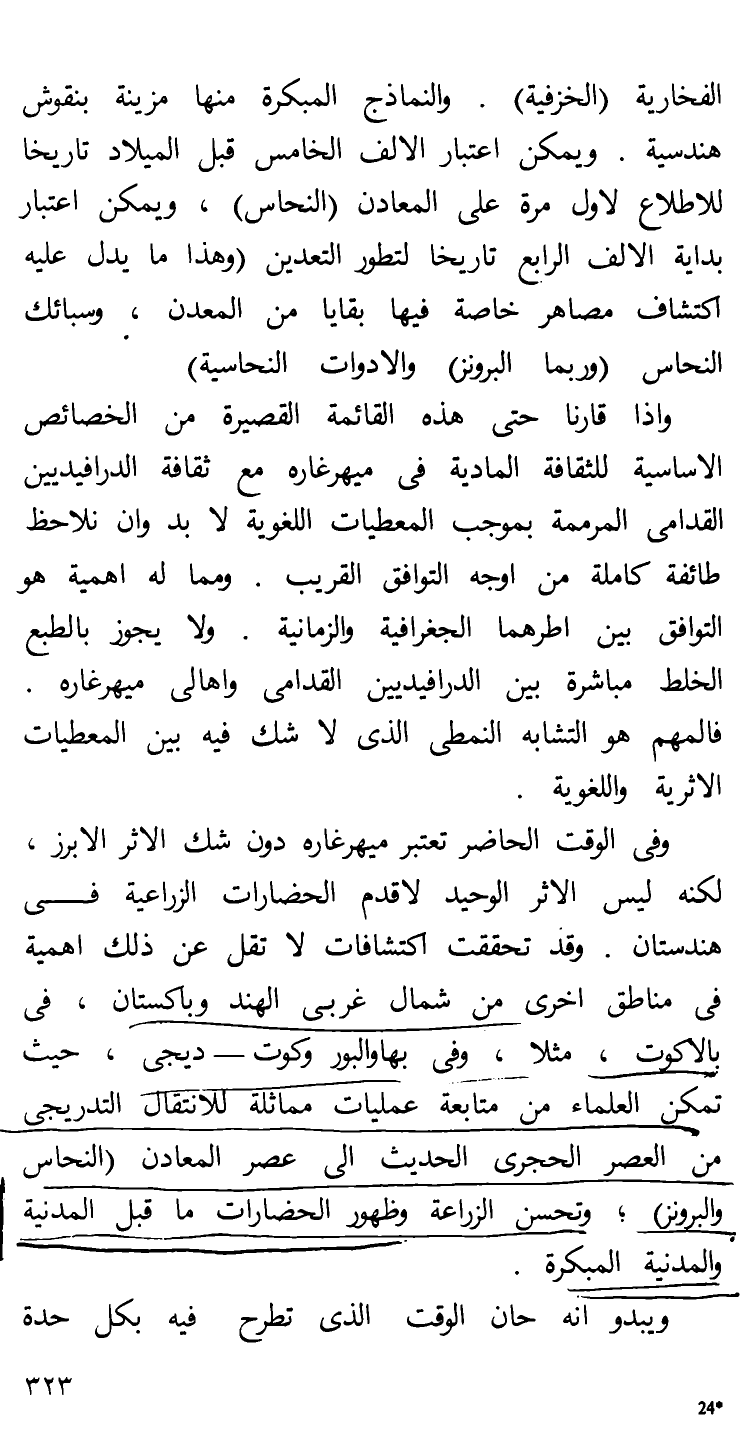 الفخارية (الخزفية) . والنماذج المبكرة منها مزينة بنقوش
هندسية . ويمكن اعتبار الالف الخامس قبل الميلاد تاريخا
للاطلاع لاول مرة على المعادن (النحاس) ، ويمكن اعتبار
بداية الالف الرابع تاريخا لتطور التعدين (وهذا ما يدل عليه
اكتشاف مصاهر خاصة فيها بقايا من المعدن ، وسبائك
النحاس (وربما البرونز) والادوات النحاسية)
واذا قارنا حتى هذه القائمة القصيرة من الخصائص
الاساسية للثقافة المادية فى ميهرغاره مع ثقافة الدرافيديين
القدامى المرممة بموجب المعطيات اللغوية لا بد وان نلاحظ
طائفة كاملة من اوجه التوافق القريب . ومما له اهمية هو
التوافق بين اطرهما الجغرافية والزمانية . ولا يجوز بالطبع
الخلط مباشرة بين الدرافيديين القدامى واهالى ميهرغاره .
فالمهم هو التشابه النمطى الذى لا شك فيه بين المعطيات
الاثرية واللغوية .
وفى الوقت الحاضر تعتبر ميهرغاره دون شك الاثر الابرز ،
لكنه ليس الاثر الوحيد لاقدم الحضارات الزراعية فــــى
هندستان . وقد تحققت اكتشافات لا تقل عن ذلك اهمية
فى مناطق اخرى من شمال غربى الهند وباكستان ، فى
بالاكوت ، مثلا ، وفى بهاوالبور وكوت — ديجى ، حيث
تمكن العلماء من متابعة عمليات مماثلة للانتقال التدريجى
من العصر الحجرى الحديث الى عصر المعادن (النحاس
والبرونز) ؛ وتحسن الزراعة وظهور الحضارات ما قبل المدنية
والمدنية المبكرة .
ويبدو انه حان الوقت الذى تطرح فيه بكل حدة
٣٢٣
24*